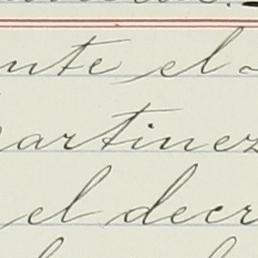 nte el
artinez
el decr